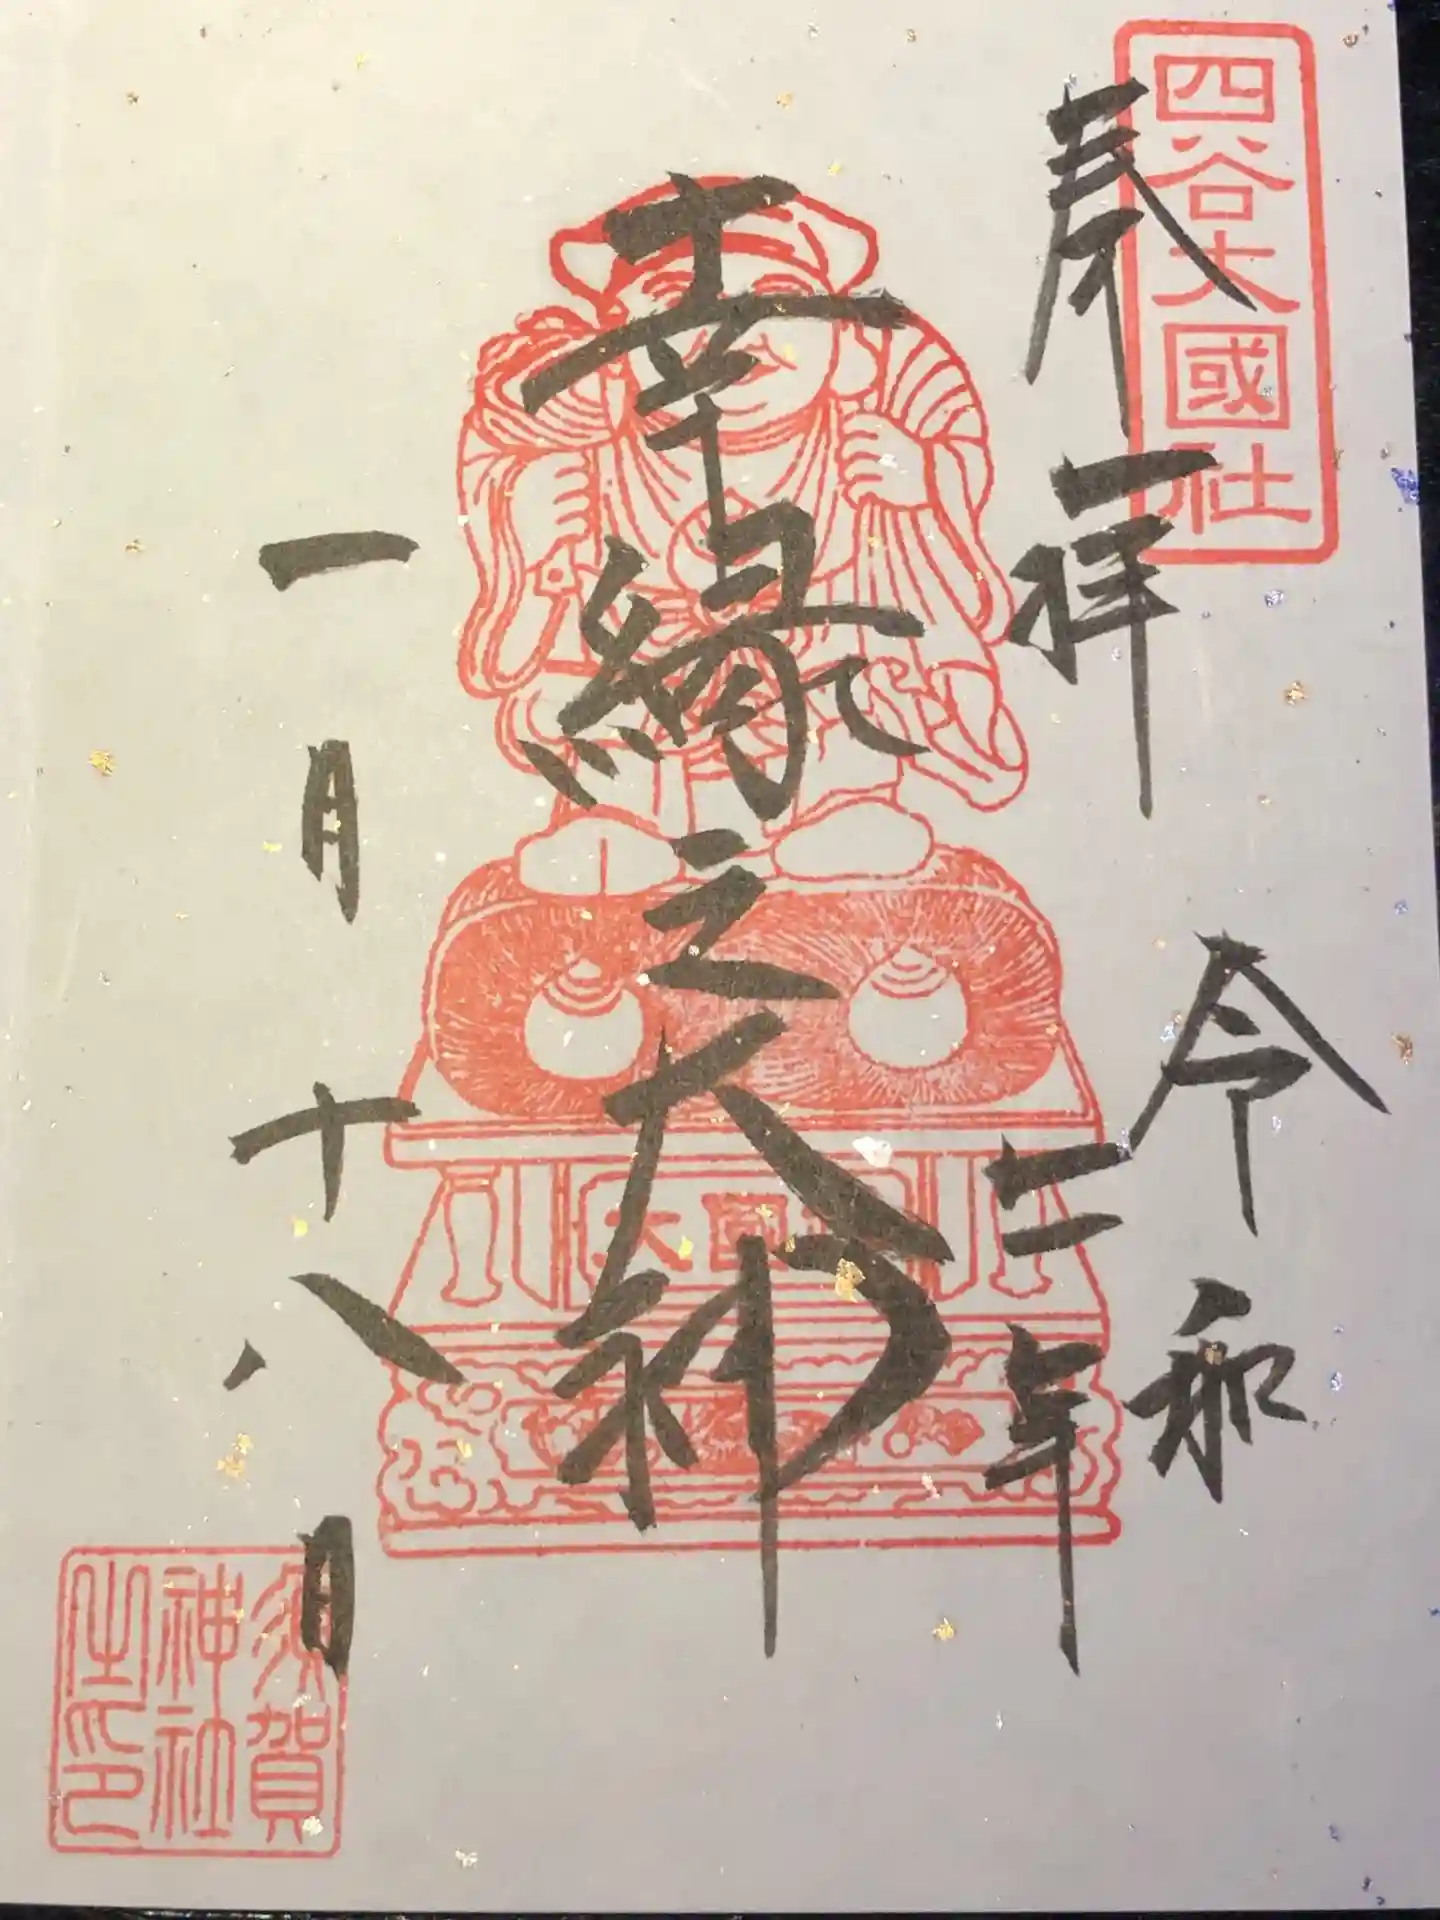 四谷大國社
奉拝
令和
二年
幸縁之大神
大國
一月十八日
須賀
神社
之印